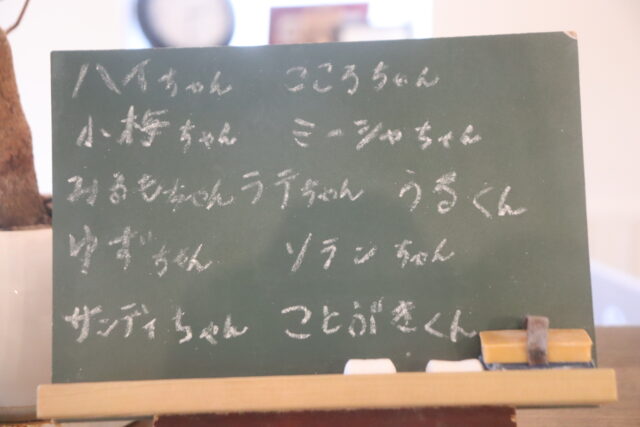 ハイちゃん こころちゃん
小梅ちゃん ミーシャちゃん
みるもちゃん ラテちゃん うるくん
ゆずちゃん ソランちゃん
サンディちゃん ことぶきくん